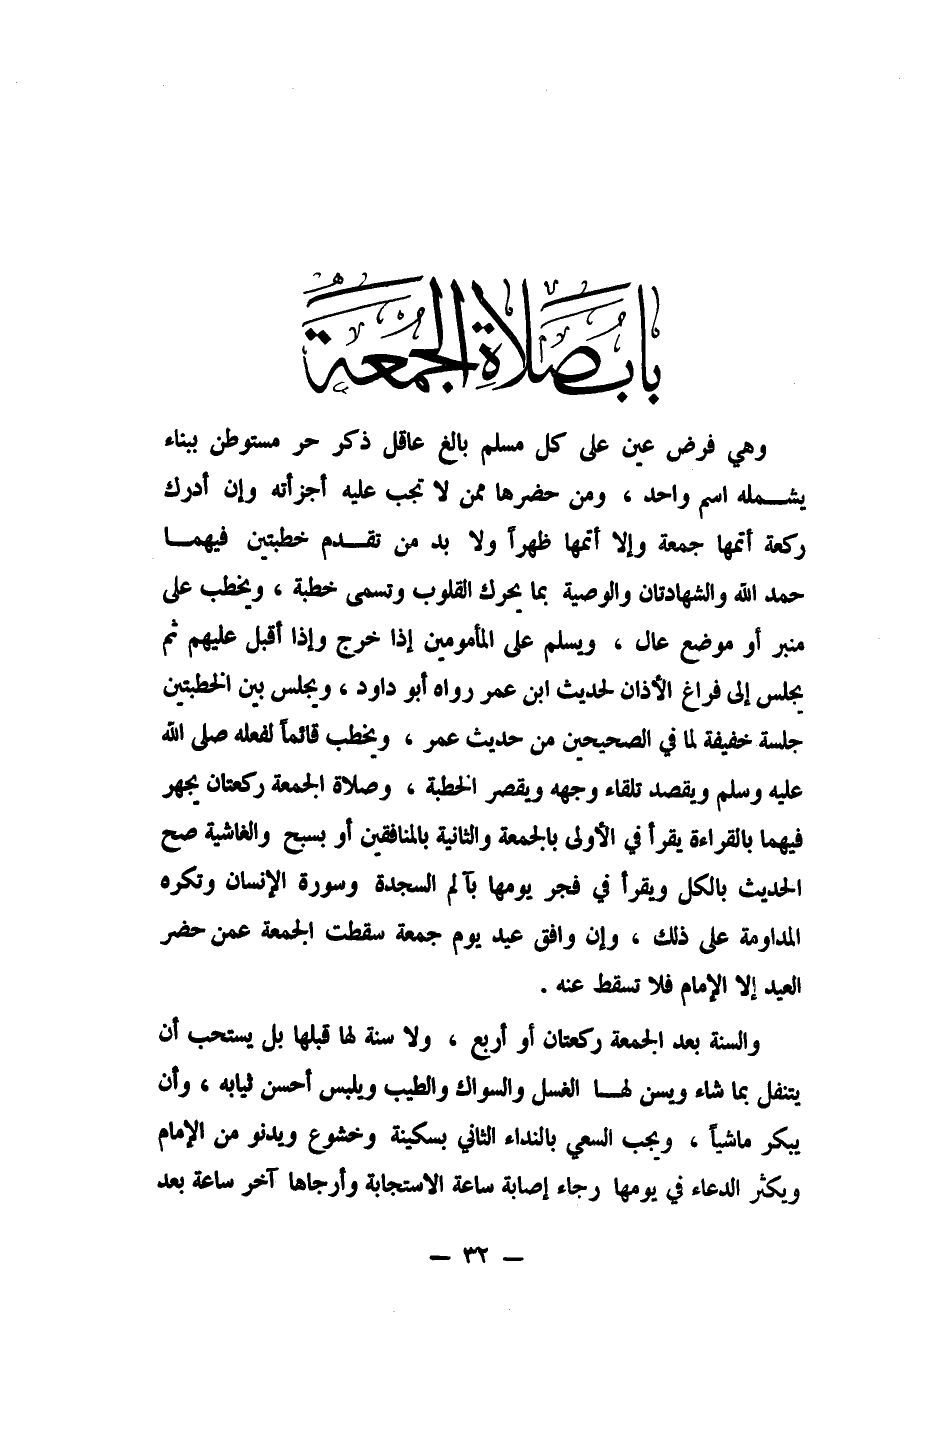 باب صلاة الجمعة
وهي فرض عين على كل مسلم بالغ عاقل ذكر حر مستوطن ببناء
يشمله اسم واحد ، ومن حضرها ممن لا تجب عليه أجزأته وإن أدرك
ركعة أتمها جمعة وإلا أتمها ظهراً ولا بد من تقدم خطبتين فيهما
حمد الله والشهادتان والوصية بما يحرك القلوب وتسمى خطبة ، ويخطب على
منبر أو موضع عال ، ويسلم على المأمومين إذا خرج وإذا أقبل عليهم ثم
يجلس إلى فراغ الأذان لحديث ابن عمر رواه أبو داود ، ويجلس بين الخطبتين
جلسة خفيفة لما في الصحيحين من حديث عمر ، ويخطب قائماً لفعله صلى الله
عليه وسلم ويقصد تلقاء وجهه ويقصر الخطبة ، وصلاة الجمعة ركعتان يجهر
فيهما بالقراءة يقرأ في الأولى بالجمعة والثانية بالمنافقين أو بسبح والغاشية صح
الحديث بالكل ويقرأ في فجر يومها بآلم السجدة وسورة الإنسان وتكره
المداومة على ذلك ، وإن وافق عيد يوم جمعة سقطت الجمعة عمن حضر
العيد إلا الإمام فلا تسقط عنه .
والسنة بعد الجمعة ركعتان أو أربع ، ولا سنة لها قبلها بل يستحب أن
يتنفل بما شاء ويسن لها الغسل والسواك والطيب ويلبس أحسن ثيابه ، وأن
يبكر ماشياً ، ويجب السعي بالنداء الثاني بسكينة وخشوع ويدنو من الإمام
ويكثر الدعاء في يومها رجاء إصابة ساعة الاستجابة وأرجاها آخر ساعة بعد
— ٣٢ —